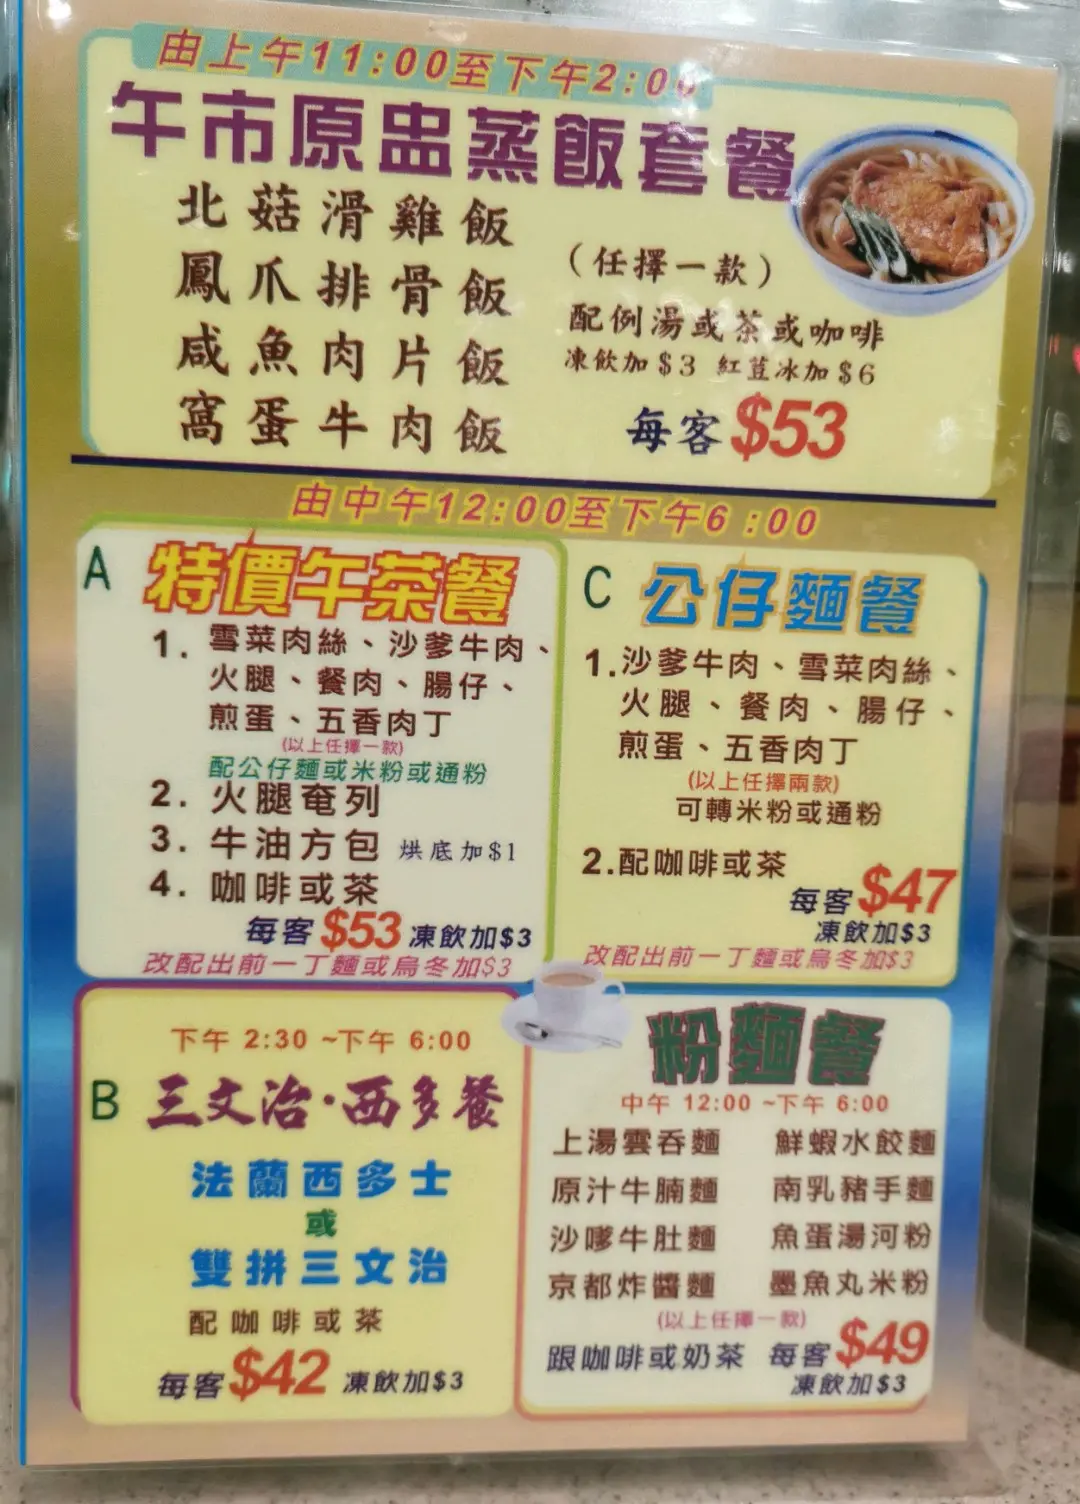 由上午11:00至下午2:00
午市原盅蒸飯套餐
北菇滑雞飯
鳳爪排骨飯
咸魚肉片飯
窩蛋牛肉飯
(任擇一款)
配例湯或茶或咖啡
凍飲加$3 紅荳冰加$6
每客$53
由中午12:00至下午6:00
A 特價午茶餐
1. 雪菜肉絲、沙爹牛肉、
火腿、餐肉、腸仔、
煎蛋、五香肉丁
(以上任擇一款)
配公仔麵或米粉或通粉
2. 火腿奄列
3. 牛油方包 烘底加$1
4. 咖啡或茶
每客$53 凍飲加$3
改配出前一丁麵或烏冬加$3
C 公仔麵餐
1.沙爹牛肉、雪菜肉絲、
火腿、餐肉、腸仔、
煎蛋、五香肉丁
(以上任擇兩款)
可轉米粉或通粉
2.配咖啡或茶
每客$47
凍飲加$3
改配出前一丁麵或烏冬加$3
下午 2:30 ~下午 6:00
B 三文治·西多餐
法蘭西多士
或
雙拼三文治
配咖啡或茶
每客$42 凍飲加$3
粉麵餐
中午 12:00 ~下午 6:00
上湯雲吞麵 鮮蝦水餃麵
原汁牛腩麵 南乳豬手麵
沙嗲牛肚麵 魚蛋湯河粉
京都炸醬麵 墨魚丸米粉
(以上任擇一款)
跟咖啡或奶茶 每客$49
凍飲加$3